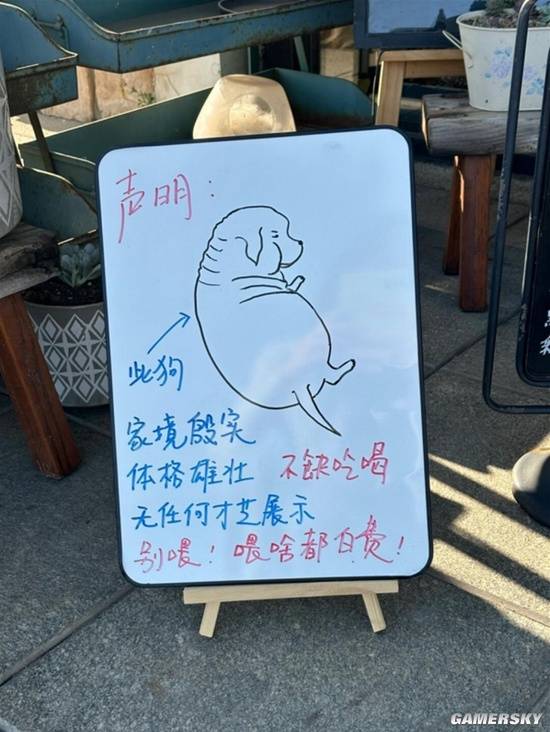 声明:
此狗
家境殷实
体格雄壮 不缺吃喝
无任何才艺展示
别喂!喂啥都白费!
GAMERSKY